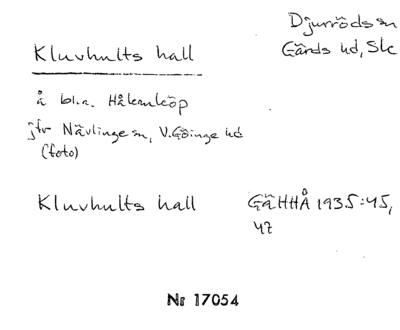 Djurröds sn
Kluvhults hall
Gärds hd, Skå
å bl.a. Håkanköp
jfr Nävlinge sn, V. Göinge hd
(foto)
Kluvhults hall GäHHÅ 1935:45,
47
Nr 17054